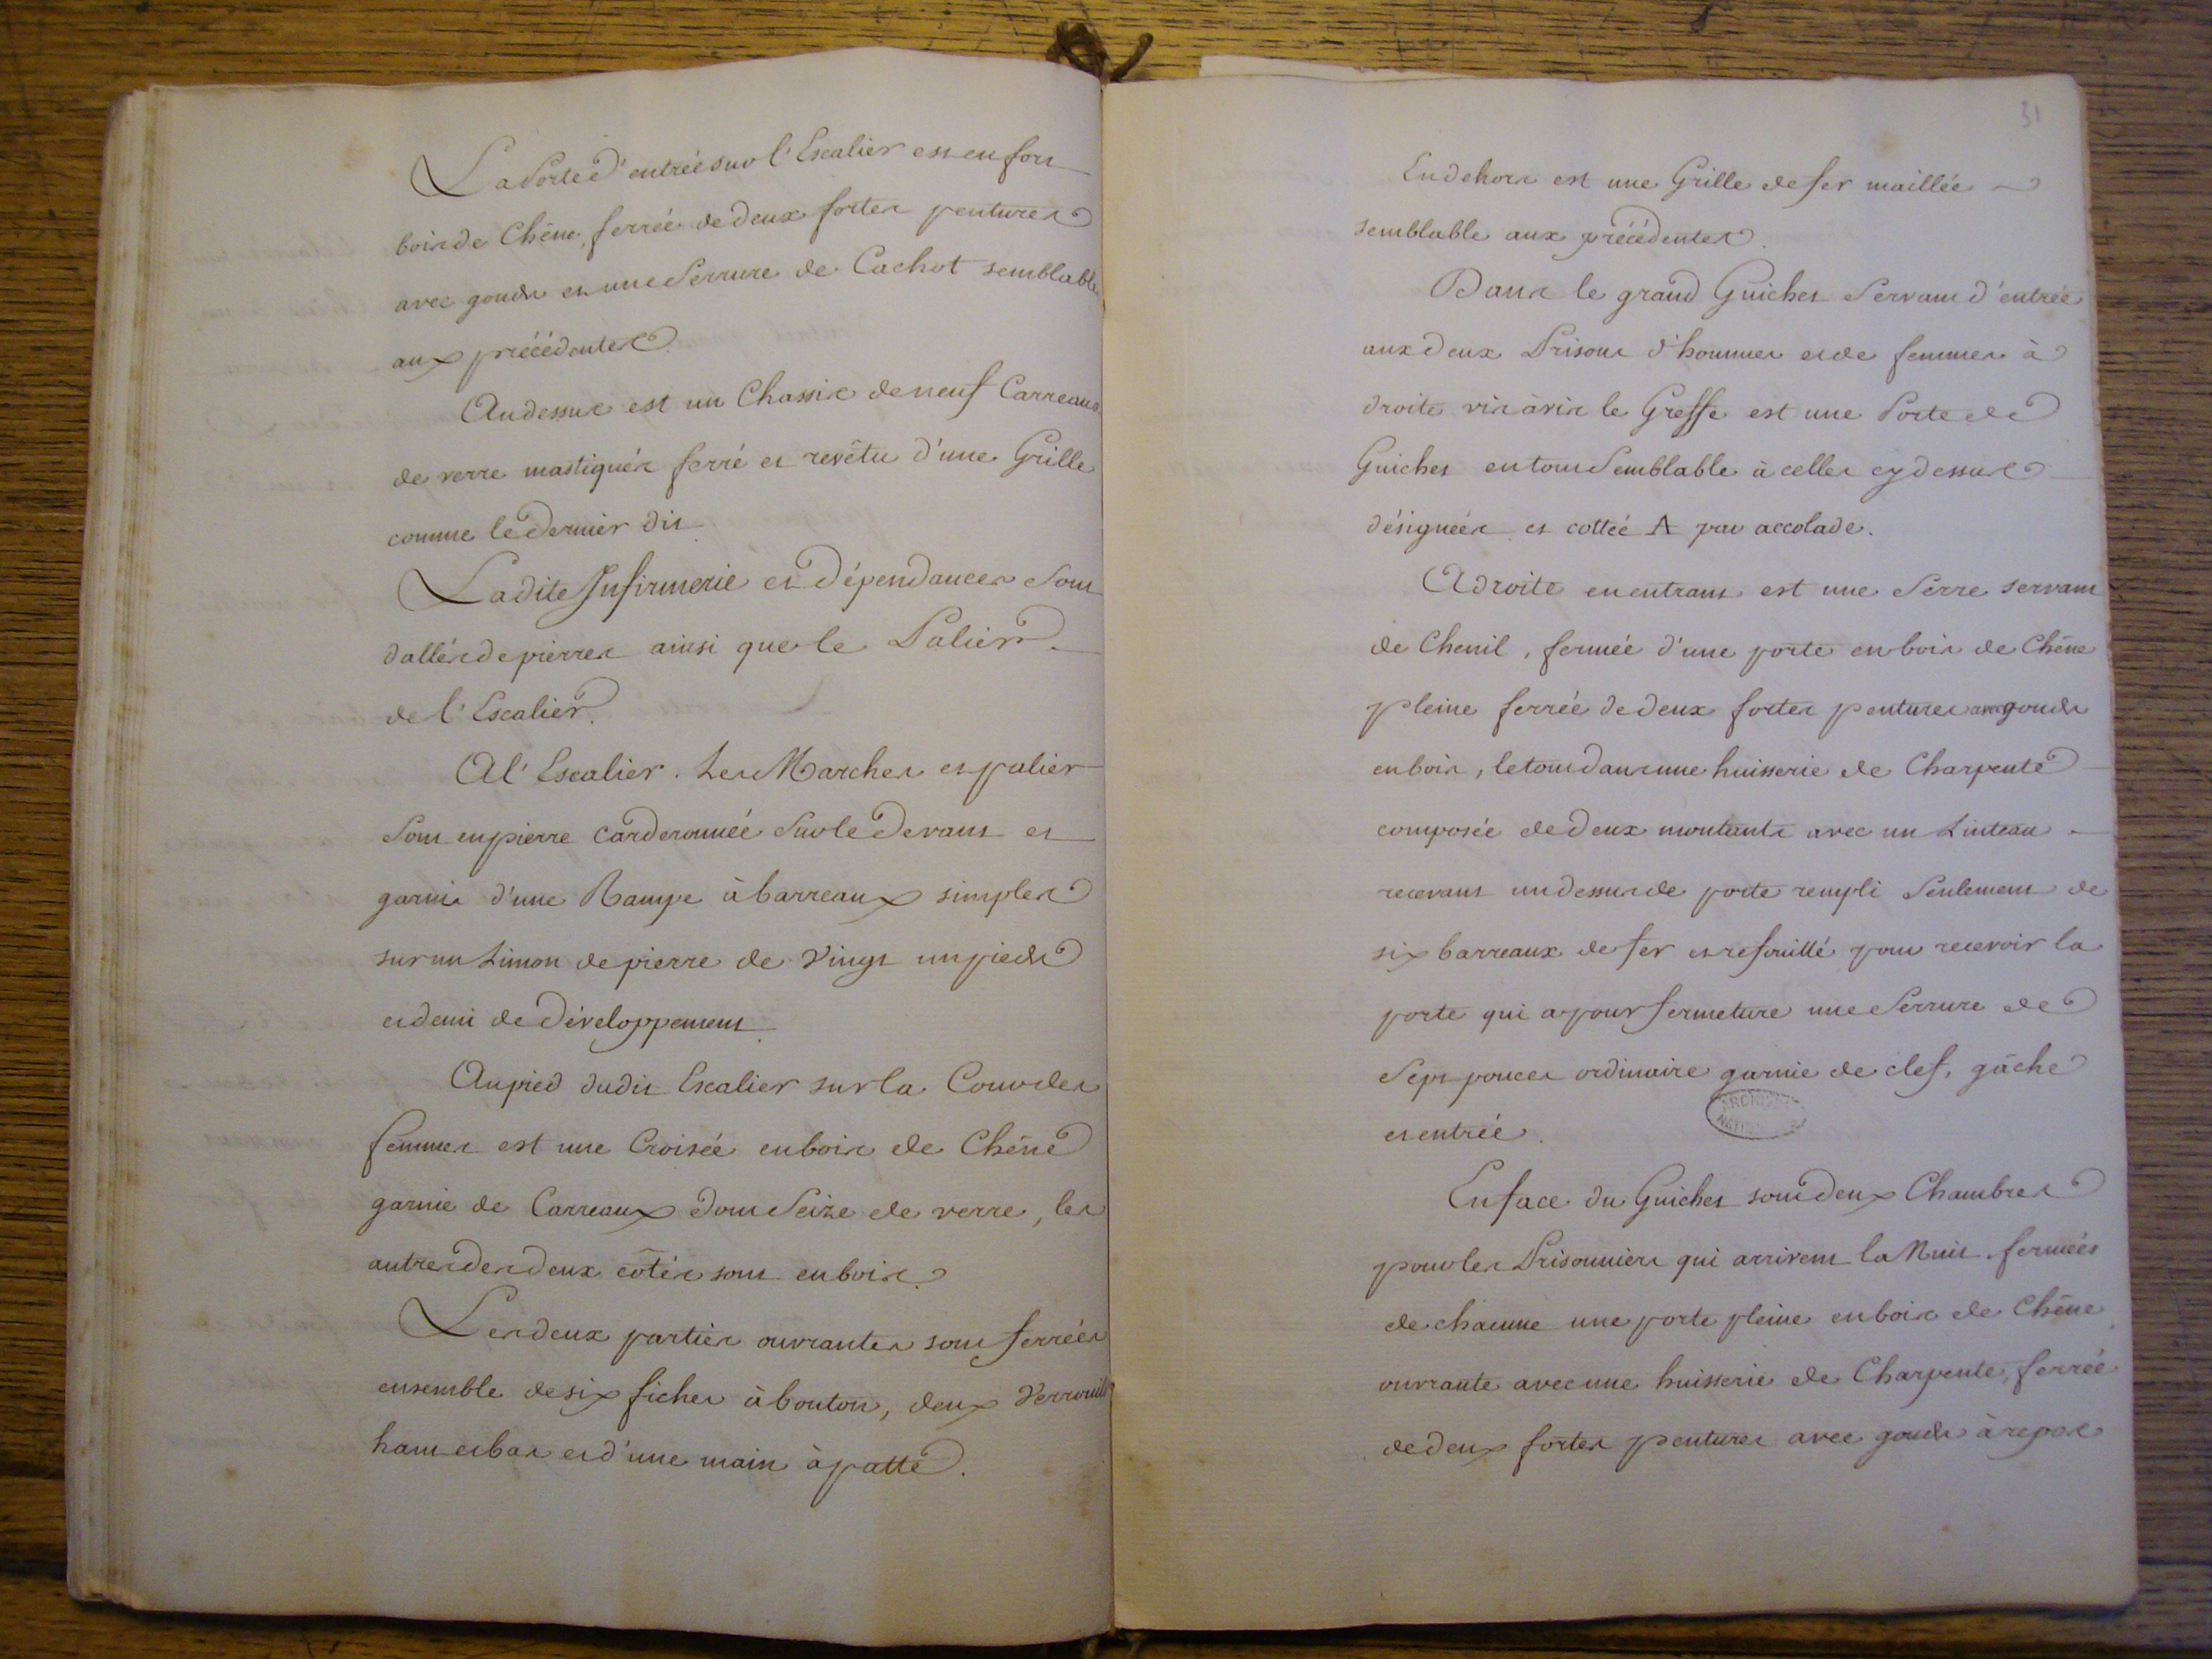 La Porte d'entrée sur l'Escalier est en fort
bois de Chêne, ferrée de deux fortes pentures
avec gonds et une Serrure de Cachot semblable
aux précédentes.
Audessus est un Chassis de neuf Carreaux
de verre mastiqués ferré et revêtu d'une Grille
comme le dernier dit
Ladite Infirmerie et dépendances sont
dallés de pierres ainsi que le Palier
de l'Escalier.
A l'Escalier. Les Marches et palier
sont en pierre carderonnée sur le devant et
garnis d'une Rampe à barreaux simples
sur un Limon de pierre de vingt un pieds
et demi de développement.
Au pied dudit Escalier sur la Cour des
femmes est une Croisée en bois de Chêne
garnie de Carreaux dont Seize de verre, les
autres des deux côtés sont en bois.
Les deux parties ouvrantes sont ferrées
ensemble de six fiches à bouton, deux Verrouils
haut et bas et d'une main à patte.
31
En dehors est une Grille de fer maillée
semblable aux précédentes.
Dans le grand Guichet Servant d'entrée
aux deux Prisons d'hommes et de femmes à
droite vis à vis le Greffe est une Porte de
Guichet en tout Semblable à celles cy dessus
désignées et cottée A par accolade.
A droite en entrant est une Serre servant
de Chenil, fermée d'une porte en bois de Chêne
pleine ferrée de deux fortes pentures avec gonds
en bois, le tout dans une huisserie de Charpente
composée de deux montants avec un Linteau
recevant un dessus de porte rempli Seulement de
six barreaux de fer et refouillé pour recevoir la
porte qui a pour fermeture une Serrure de
Sept pouces ordinaire garnie de clef, gâche
et entrée.
ARCHIVES
NATIONALES
En face du Guichet sont deux Chambres
pour les Prisonniers qui arrivent la Nuit fermées
de chacune une porte pleine en bois de Chêne
ouvrante avec une huisserie de Charpente, ferrée
de deux fortes pentures avec gonds à repos